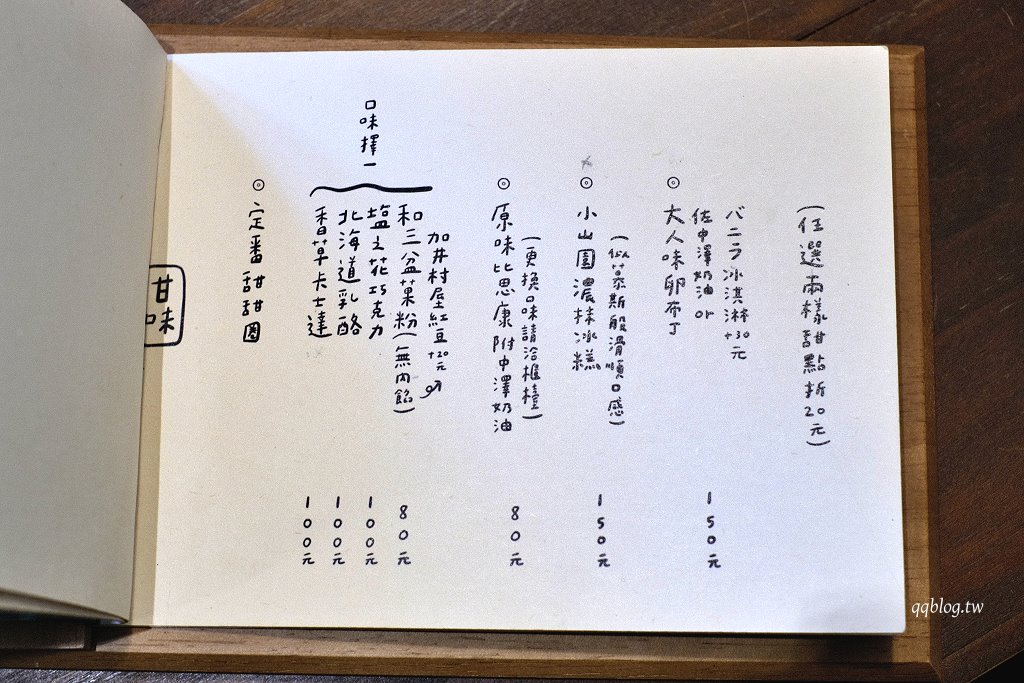 甘味
定番甜甜圈
口味擇一
香草卡士達
100元
北海道乳酪
100元
塩之花巧克力
100元
和三盆菓粉(無內餡)
80元
加井村屋紅豆+20元
原味比思康附中澤奶油
(更換口味請洽櫃檯)
80元
小山園濃抹冰糕
(似慕斯般滑順口感)
150元
大人味卵布丁
佐中澤奶油 or
バニラ冰淇淋+30元
150元
(任選兩樣甜點折20元)
qqblog.tw